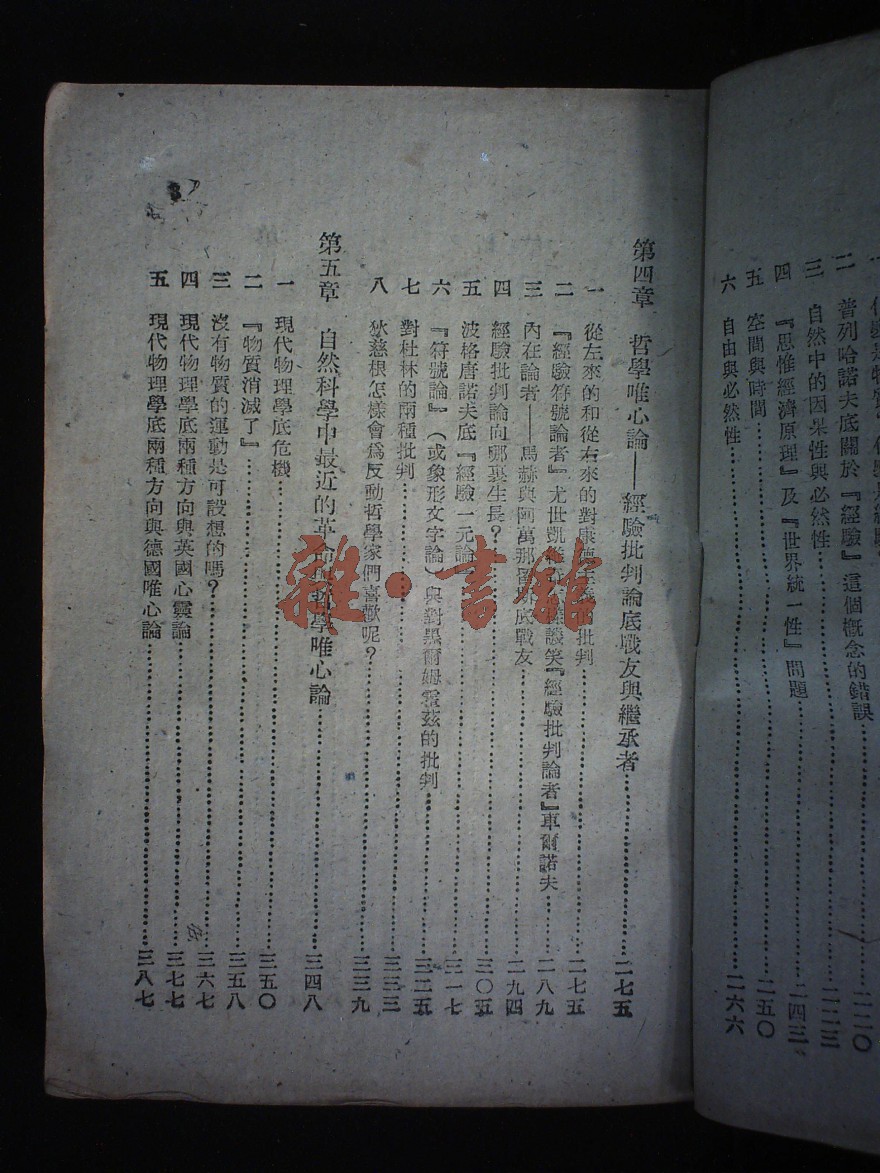 普列哈諾夫底關於『經驗』這個概念的錯誤……二二〇
三 自然中的因果性與必然性……二二三
四 『思惟經濟原理』及『世界統一性』問題……二四三
五 空間與時間……二五〇
六 自由與必然性……二六六
第四章 哲學唯心論——經驗批判論底戰友與繼承者……二七五
一 從左來的和從右來的對康德主義的批判……二七五
二 『經驗符號論者』尤世凱維 譏笑『經驗批判論者』車爾諾夫……二八九
三 內在論者——馬赫與阿萬那留斯底戰友……二九四
四 經驗批判論向哪裏生長?……三〇五
五 波格唐諾夫底『經驗一元論』……三一七
六 『符號論』(或象形文字論)與對黑爾姆霍茲的批判……三二五
七 對杜林的兩種批判……三三三
八 狄慈根怎樣會為反動哲學家們喜歡呢?……三三九
第五章 自然科學中最近的革命與哲學唯心論……三四八
一 現代物理學底危機……三五〇
二 『物質消滅了』……三五八
三 沒有物質的運動是可設想的嗎?……三六七
四 現代物理學底兩種方向與英國心靈論……三七七
五 現代物理學底兩種方向與德國唯心論……三八七
雜·書館